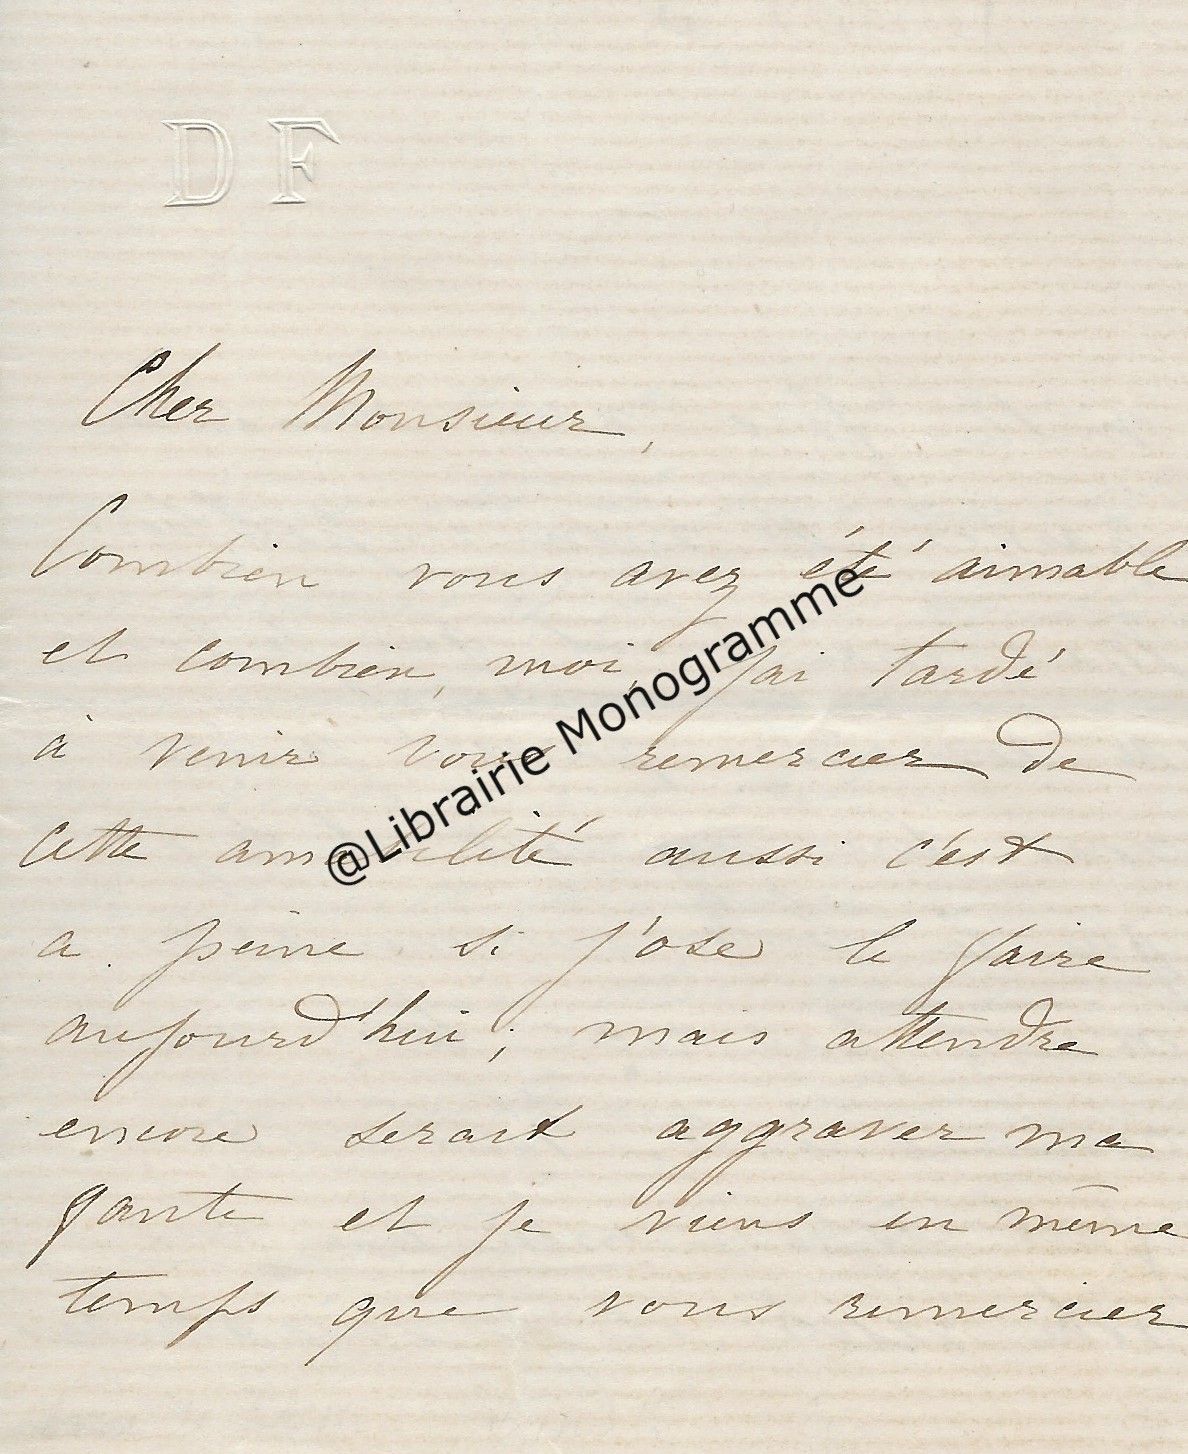 D F
Cher Monsieur,
Combien vous avez été aimable
et combien, moi, j'ai tardé
à venir vous remercier de
cette amabilité aussi c'est
a peine si j'ose le faire
aujourd'hui; mais attendre
encore serait aggraver ma
faute et je viens en même
temps que vous remercier
@Librairie Monogramme